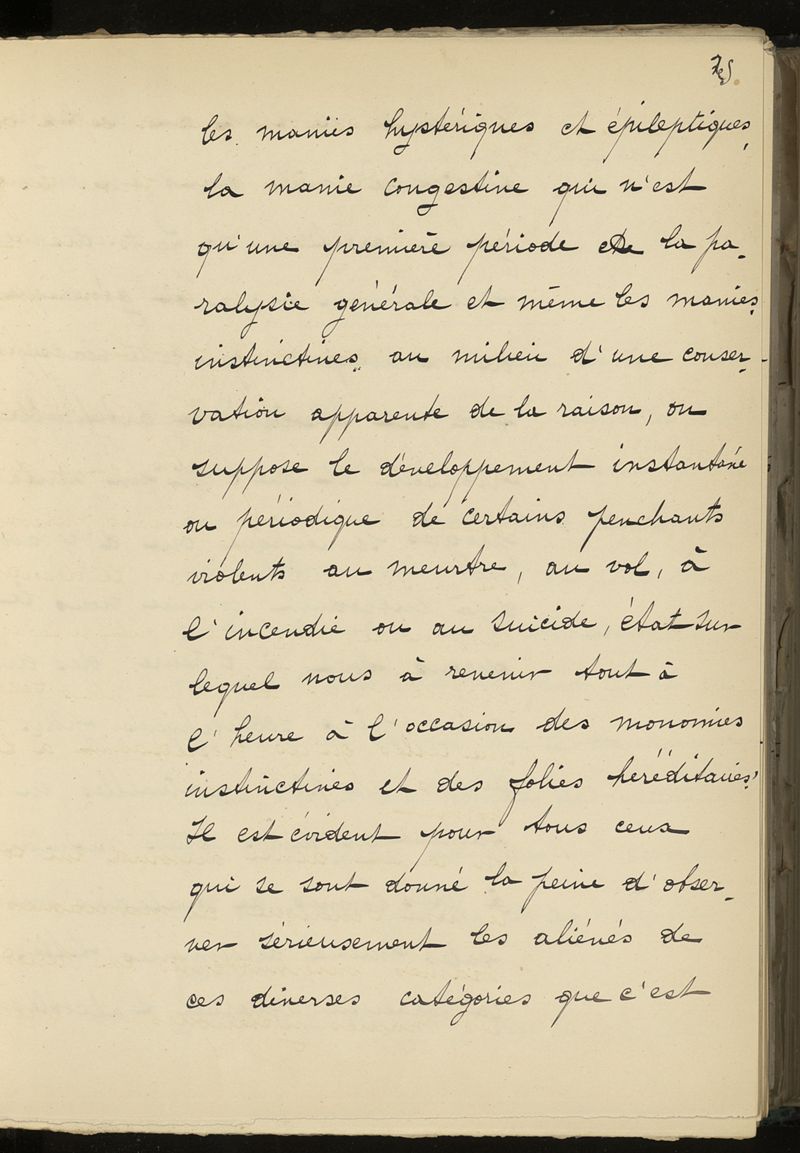 les manies hystériques et épileptiques,
la manie congestive qui n'est
qu'une première période de la pa-
ralysie générale et même les manies
instinctives, au milieu d'une conser-
vation apparente de la raison, on
suppose le développement instantané
ou périodique de certains penchants
violents au meurtre, au vol, à
l'incendie ou au suicide, état sur
lequel nous à revenir tout à
l'heure à l'occasion des monomies
instinctives et des folies héréditaires.
Il est évident pour tous ceux
qui se sont donné la peine d'obser-
ver sérieusement les aliénés de
ces diverses catégories que c'est